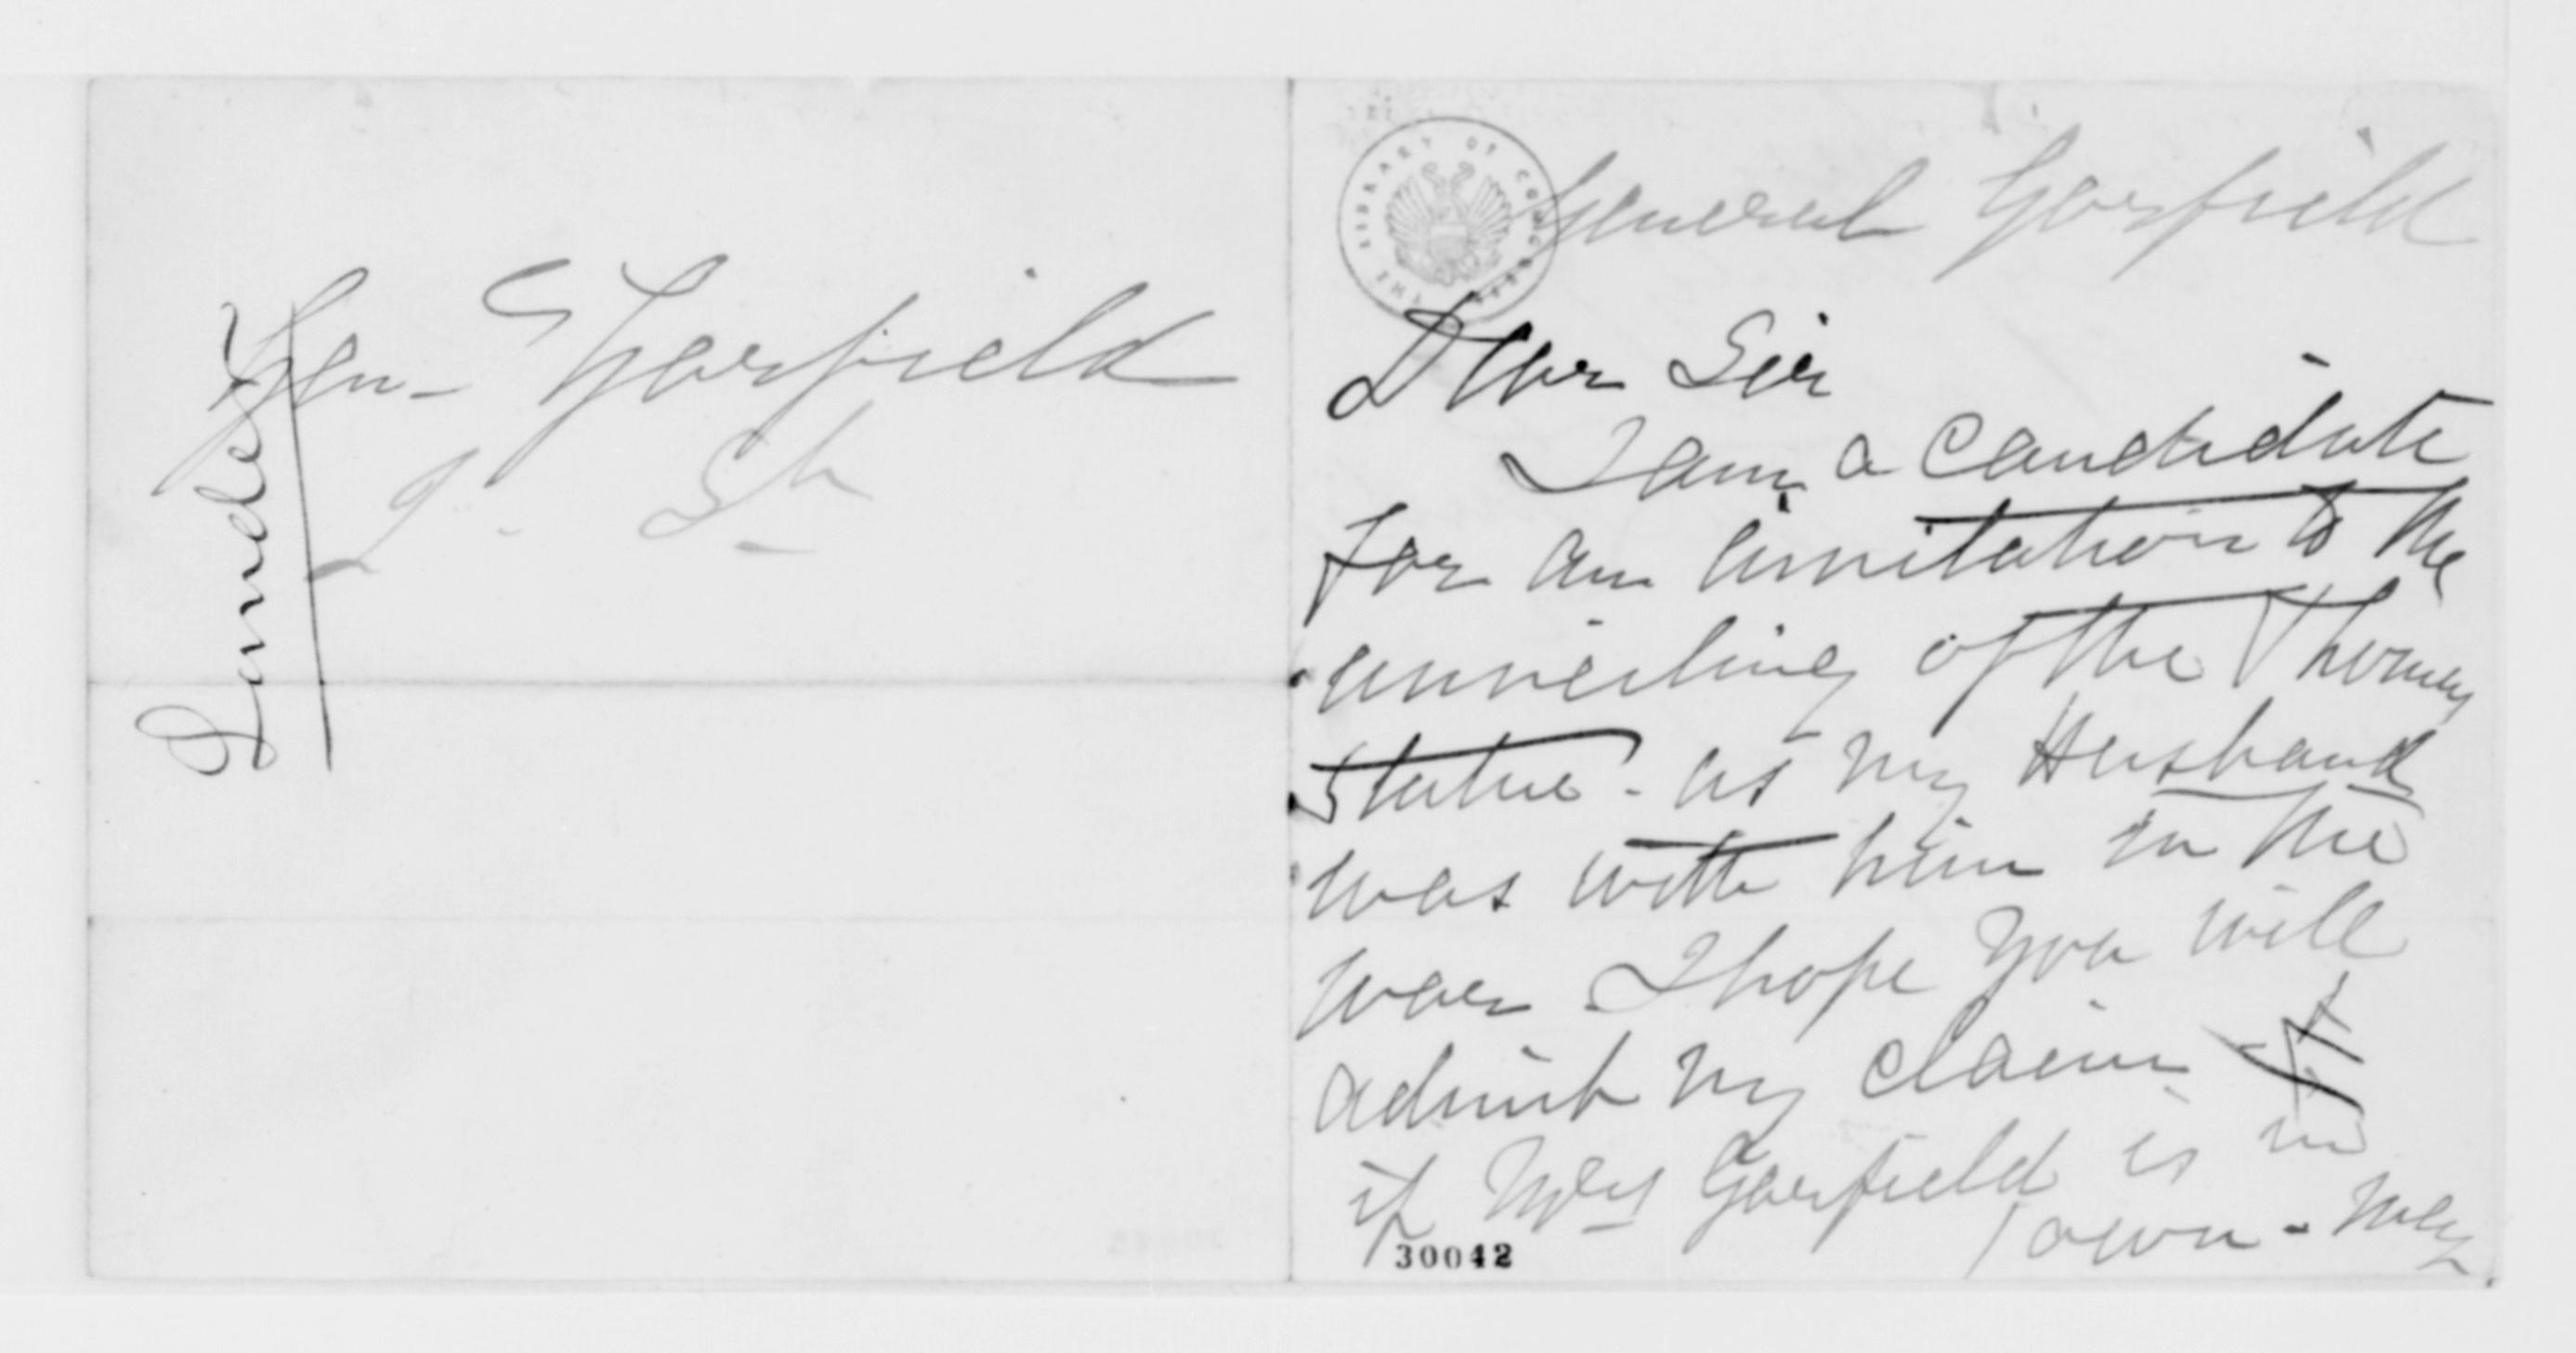 Gen- Garfield
I- St
Lander
THE LIBRARY OF CONGRESS
General Garfield
Dear Sir
I am a candidate
for an invitation to the
unveiling of the Thomas
Statue. as my Husband
was with him in the
war I hope you will
admit my claim
if Mrs Garfield is in
Town - may
30042